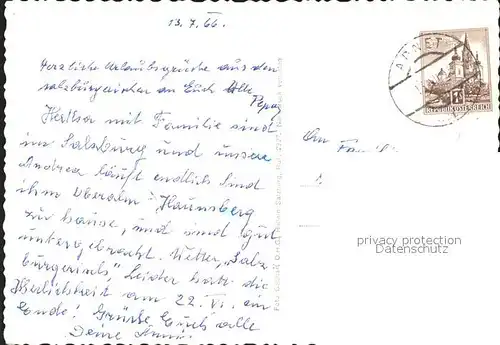 13.7.66.
Herzliche Urlaubsgrüsse aus dem
salzburgischen an Euch Alle
Hertha mit Familie sind
im Salzburg und unsere
Andrea läuft endlich. Sind
Haunsberg
zu hause, und sind gut
untergebracht. Wetter „Salz
burgerisch" Leider hat die
Herrlichkeit am 22. VI. ein
Ende! Grüsse Euch alle
Deine
ADNET
REPUBLIK ÖSTERREICH
An Famili
privacy protection
Datenschutz